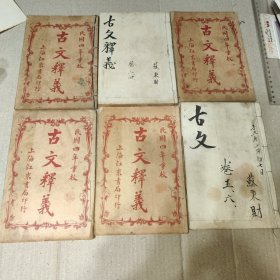 民國四年重校
古文釋義
上海江東書局印行
古文釋義
卷一二
蘇東財
民國四年重校
古文釋義
上海江東書局印行
民國四年重校
古文釋義
上海江東書局印行
民國四年重校
古文釋義
上海江東書局印行
古文
卷五、六、
蘇東財